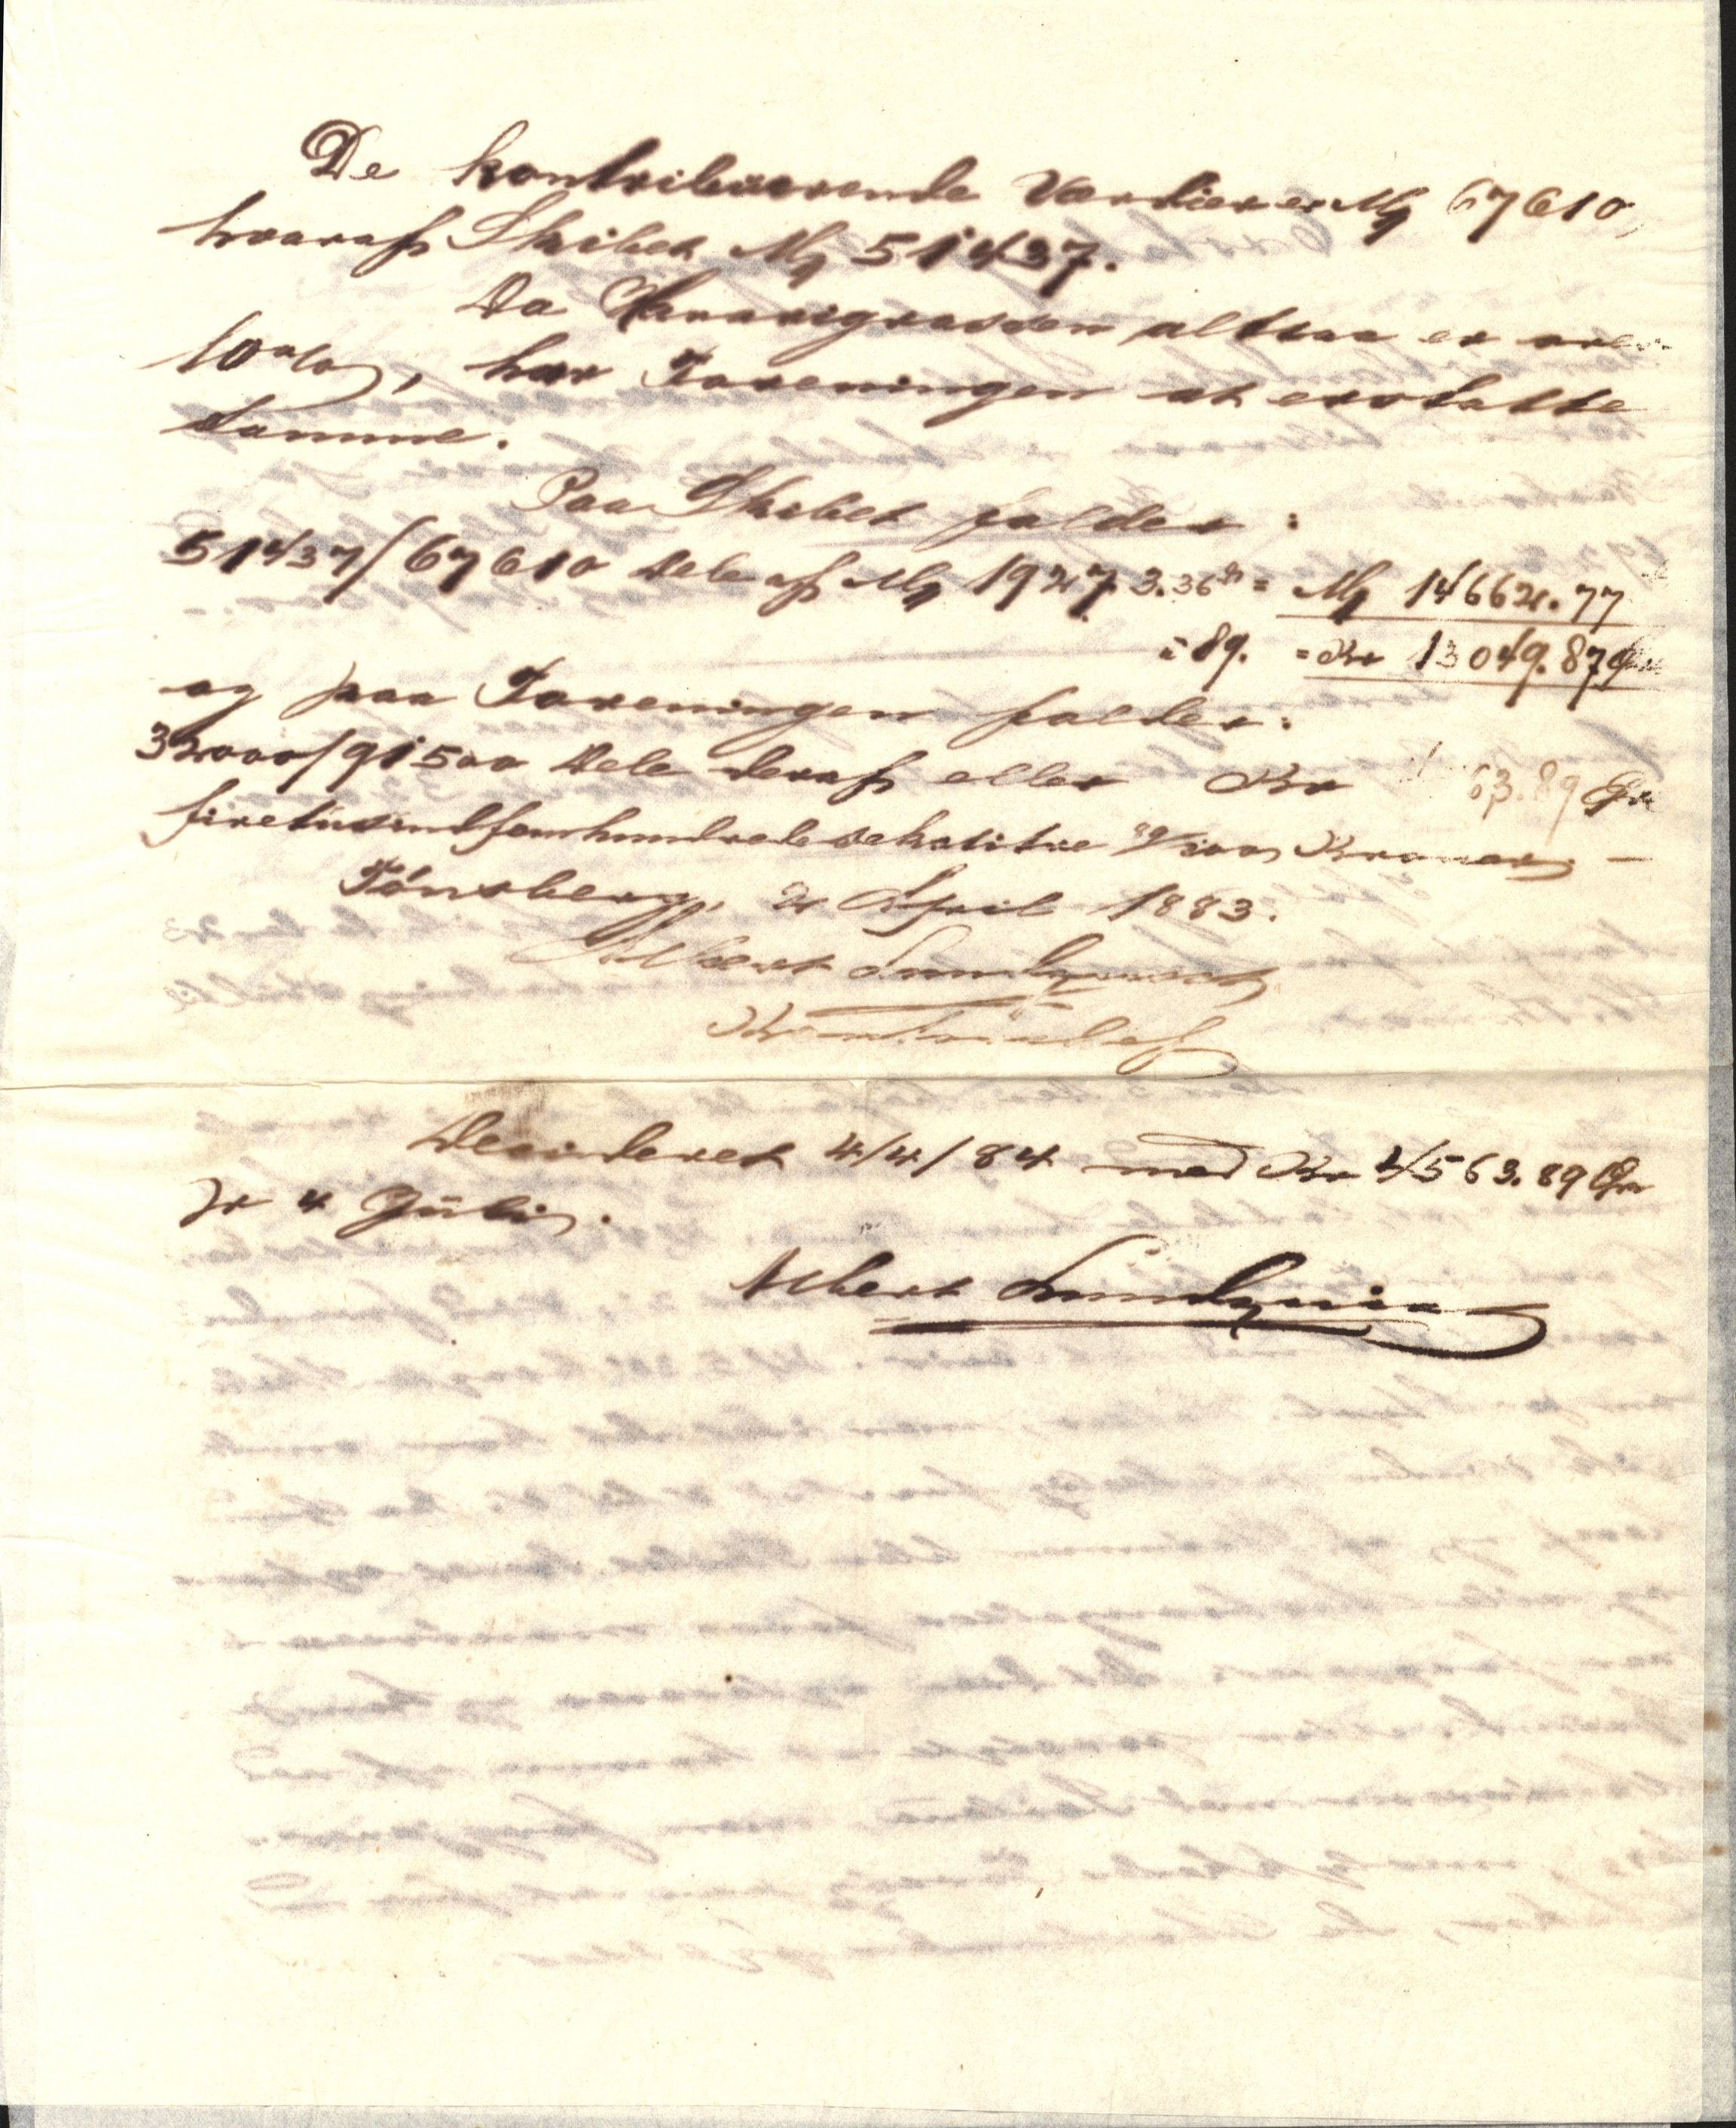 De kontribuerende Værdier er Mk 67610,
hvoraf Skibet Mk 51437.
Da Havarigrossen altsaa er over
10%, har Foreningen at erstatte
samme.
Paa Skibet falder:
51437/67610 Dele af Mk 19273.36 = Mk 14662.77
à 89. = Kr 13049.87 Øre
og paa Foreningen falder:
32000/91500 Dele deraf eller Kr 63.89 Øre
firetusindfemhundredesekstitre 89/100 Kroner. —
Tönsberg, 2 April 1883.
Albert Lundquist
Decideret 4/4/84 med Kr 4563.89 Øre
pr 4 Juli.
Albert Lundquist